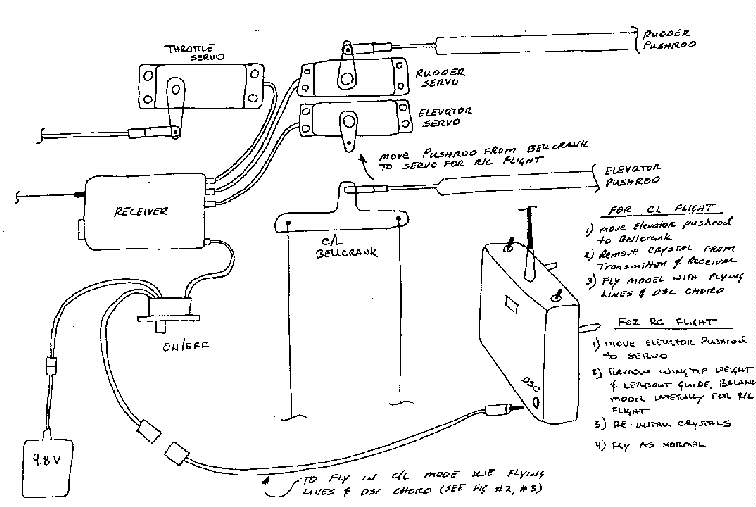 THROTTLE
SERVO
RUDDER
PUSHROD
RUDDER
SERVO
ELEVATOR
SERVO
MOVE PUSHROD FROM BELLCRANK
TO SERVO FOR R/C FLIGHT
ELEVATOR
PUSHROD
RECEIVER
C/L
BELLCRANK
FOR CL FLIGHT
1) MOVE ELEVATOR PUSHROD
TO BELLCRANK
2) REMOVE CRYSTAL FROM
TRANSMITTER & RECEIVER
3) FLY MODEL WITH FLYING
LINES & DSC CHORD
ON/OFF
FOR RC FLIGHT
1) MOVE ELEVATOR PUSHROD
TO SERVO
2) REMOVE WINGTIP WEIGHT
& LEADOUT GUIDE, BALANCE
MODEL LATERALLY FOR R/C
FLIGHT
3) RE-INSTALL CRYSTALS
4) FLY AS NORMAL
DSC
9.8V
TO FLY IN C/L MODE USE FLYING
LINES & DSC CHORD (SEE FIG #2, #3)